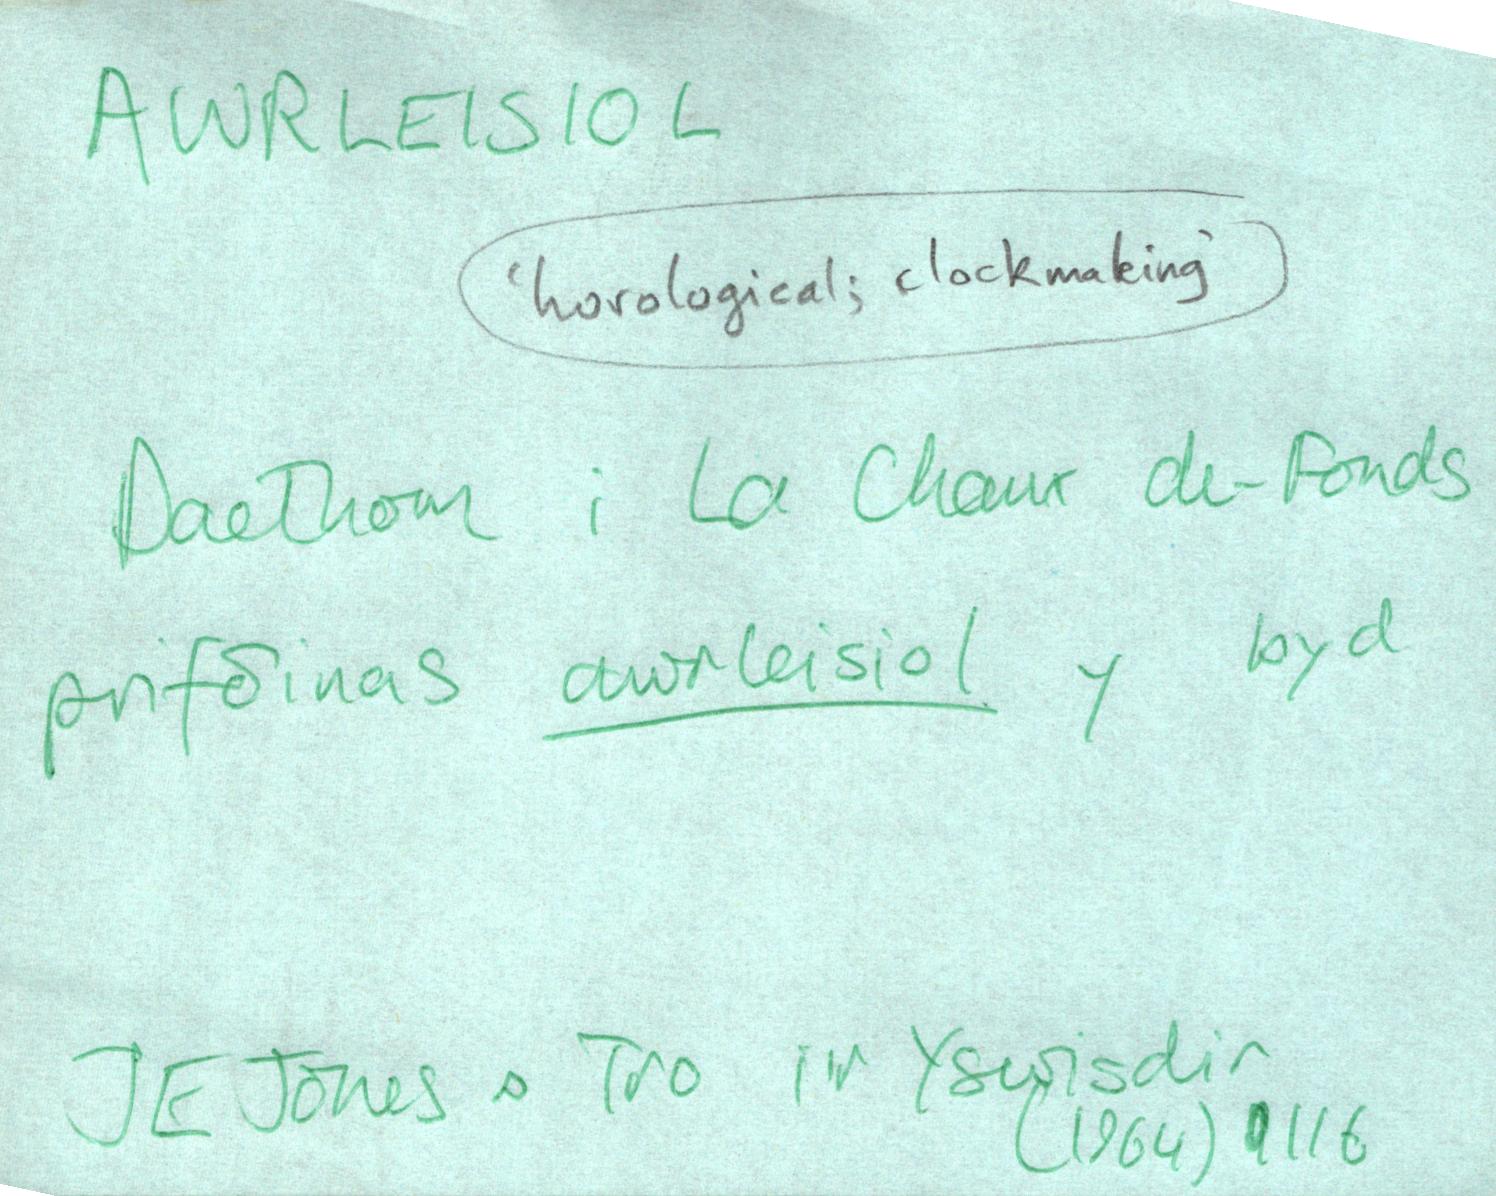 AWRLEISIOL
'horological; clockmaking'
Daethom i La Chaux de-Fonds
prifðinas awrleisiol y byd
JE Jones: Tro i'r Yswisdir
(1964) 116